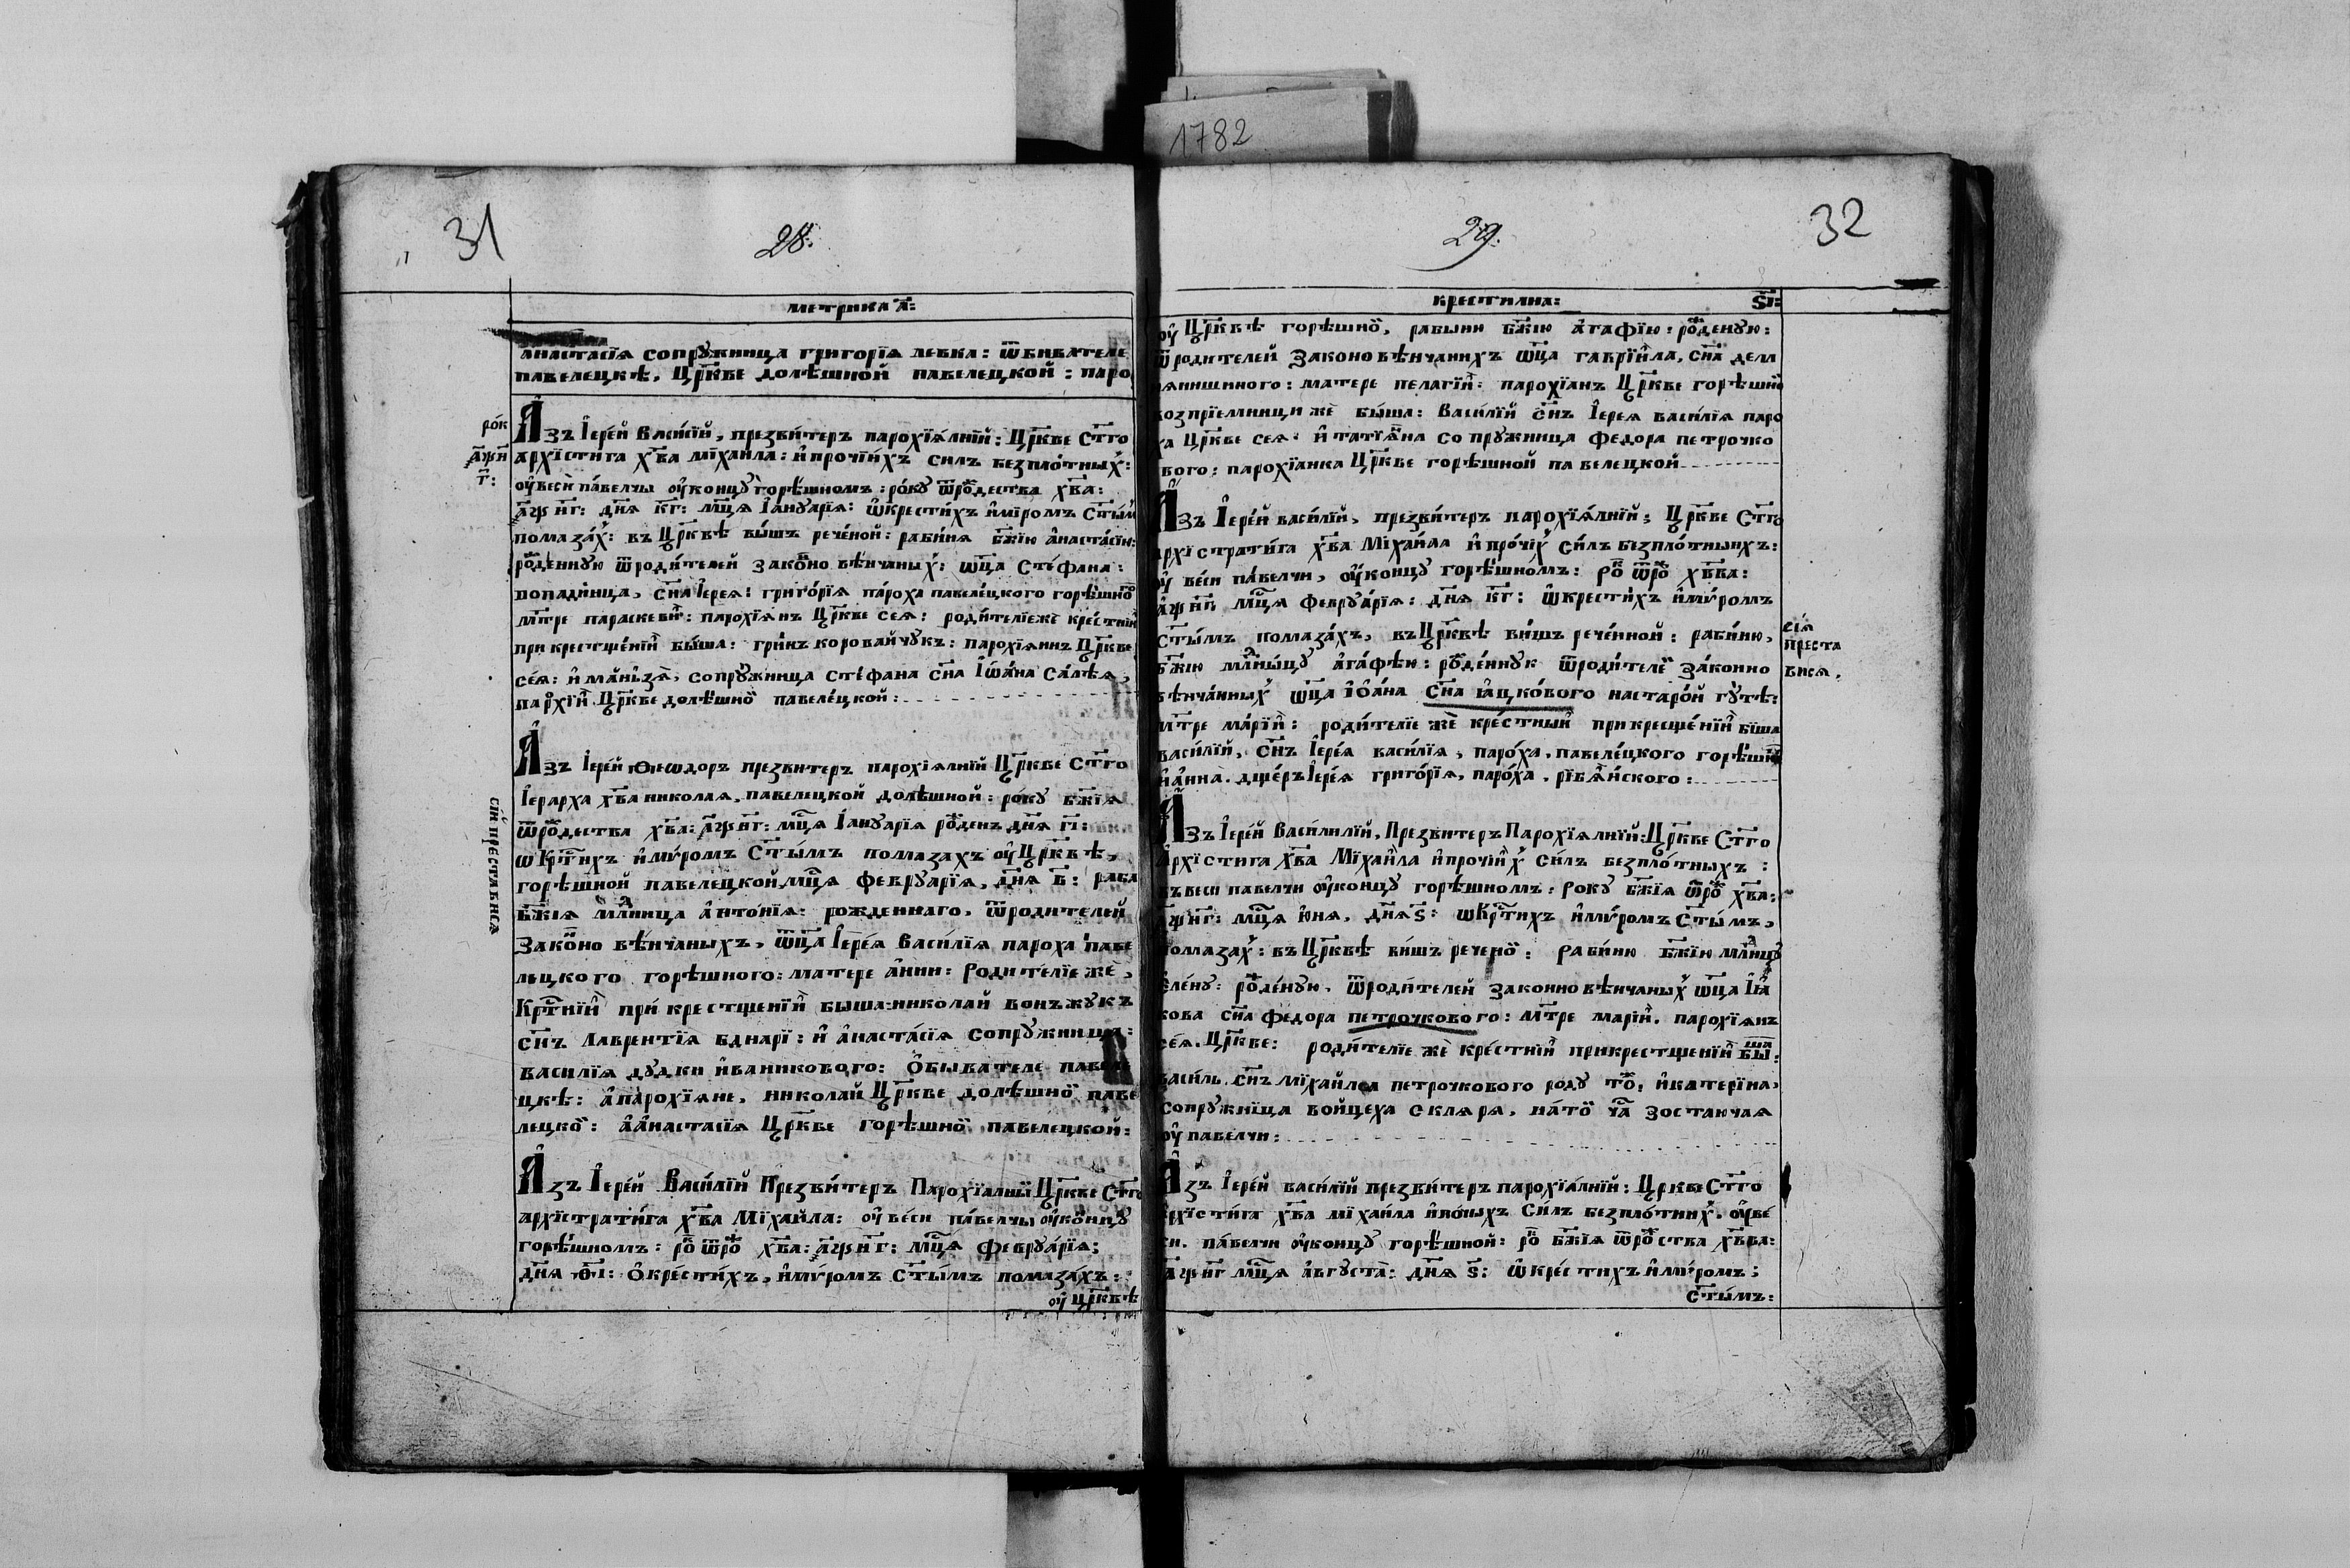 1782
31
28:
метрика а҃:
анастасїя сопружница григорїя левка: ѿбивателе
павелецкѣ, Цр҃кве долѣшной павелецкой: паро
рок
а҃ѱн
г҃:
Азъ Іерей Васілїй, презвитеръ парохїялнїй: Цр҃кве Ст҃го
архїстига хв҃а мїхаила: и прочїихъ силъ безплотных:
оу веси павелчы оу концу горѣшномъ: року ѿ рождества хв҃а:
а҃ѱнг: дня кг: мц҃я Іануарїя: ѡкрестихъ и мїромъ Сты҃м
помазах: въ Цр҃квѣ вышъ реченой: рабиня бж҃ію анастасїю:
рожденную ѿ родителей законо вѣнчаных: ѡц҃а Стефана:
попадинца, сн҃а Іерея: григорїя пароха павелецкого горѣшно
мт҃ре параскеви: парохїянъ Цр҃кве сея: родителїеже крестнїи
при крестщенїи быша: гринъ коровайчукъ: парохїянинъ Цр҃кве
сея: и манѣзя, сопружница стефана сн҃а Іѡана Салѣя,
парохїи Цр҃кве долѣшно павелецкой:
Азъ Іерей Ѳеѡдоръ презвитеръ парохїялнїй Цр҃кве Ст҃го
Іерарха хв҃а николая, павелецкой долѣшной: року бж҃їя
ѿ рождества хв҃а: а҃ѱнг: мц҃я Іануарїя рожденъ дня гі:
ѡкрт҃ихъ и мѵромъ Сты҃мъ помазахъ оу Цр҃квѣ,
горѣшной павелецкой, мц҃я февруарїя, дня в: раба
бж҃ія млд҃нца антонїя: рожденнаго, ѿ родителей
законо вѣнчаныхъ, ѡц҃а Іерея Василїя пароха паве
лецкого горѣшного: матере анни: Родителїе же,
Кртнїи при крестщенїи быша: николай вонъжукъ
сн҃ъ Лаврентїя бднарї: и анастасїя сопружница:
василїя дудки иваникового: Обывателе павеле
цкѣ: а парохїяне, николай Цр҃кве долѣшно паве
лецко: а анастасїя Цр҃кве горѣшно павелецкой:
сїй преставися
Азъ Іерей Василїй Презвитеръ Парохїалнїи Цр҃кве Ст҃го
архїстратига хв҃а Мїхаила: оу веси павелчы оу концу
горѣшномъ: ро ѿ рож хв҃а: а҃ѱнг: мц҃я февруарїя:
дня ѳі: Окрестихъ, и мѵромъ Сты҃мъ помазахъ:
оу Цр҃квѣ
29.
32
крестилна: ѕі:
оу Цр҃квѣ горѣшно, рабыни бж҃ію агафїю: рожденую:
ѿ родителей Законо вѣнчанихъ ѡц҃а гаврїила, сн҃а дем
янишиного: матере пелагїи: парохїанъ Цр҃кве горѣшно
возпрїемници же быша: Василїй сн҃ъ Іерея василїя паро
ха Цр҃кве сея: и татїяна сопружница федора петрочко
вого: парохїанка Цр҃кве горѣшной павелецкой
Азъ Іерей василїй, презвитеръ парохїялнїй; Цр҃кве Ст҃го
архїстратига хв҃а Міхаила и прочїх Силъ безплотныхъ:
оу веси павелчи, оу концу горѣшномъ: ро ѿ рож хв҃ва:
а҃ѱнг мц҃я февруарїя: дня кг: ѡкрестихъ и мѵромъ
Сты҃мъ помазахъ, въ Цр҃квѣ вишъ реченной: рабиню,
бж҃їю млд҃нцу агафѣю: рожденнук ѿ родителе законно
вѣнчанных ѡц҃а Іоана сн҃а яцкового на старой гутѣ:
мт҃ре марїи: родителїе же крестныи при кресщенїи бїша
василїй, сн҃ъ Іерея василїя, пароха, павелецкого горѣшн
и анна, дщеръ Іерея григорїя, пароха, рїбянского:
сїя
преста
вися.
Азъ Іерей Василилїй, Презвитеръ Парохїялнїй: Цр҃кве Ст҃го
Архїстига хв҃а Мїхаила и прочїих Силъ безплотныхъ:
въ веси павелчи оу концу горѣшномъ: року бж҃їя ѿ рож хв҃а:
а҃ѱнг: мц҃я юня, дня ѕ: ѡкрт҃ихъ и мѵромъ Сты҃мъ,
помазах: въ Цр҃квѣ вишъ речено: рабиню бж҃їю млд҃нцу
елену: рожденую, ѿ родителей законно вѣнчаных ѡц҃а Іа
кова сн҃а федора петрочкового: мт҃ре марїи, парохїянъ
сея. Цр҃кве: родителїе же крестнїи при крестщенїи быша:
василь сн҃ъ мїхайлса петрочкового роду то, и катерїна,
сопружнїца войцеха скляря, на то ча зостаючая
оу павелчи:
Азъ Іерей василїй презвитеръ парохїялнїй: Цр҃кве Ст҃го
архїстига хв҃а мїхаила и иныхъ Силъ безплотних, оу ве
си, павелчи оу концу горѣшной: ро бж҃їя ѿ рожства хв҃ва:
а҃ѱнг мц҃я августа: дня ѕ: ѡкрестихъ и мѵромъ;
сты҃мъ: